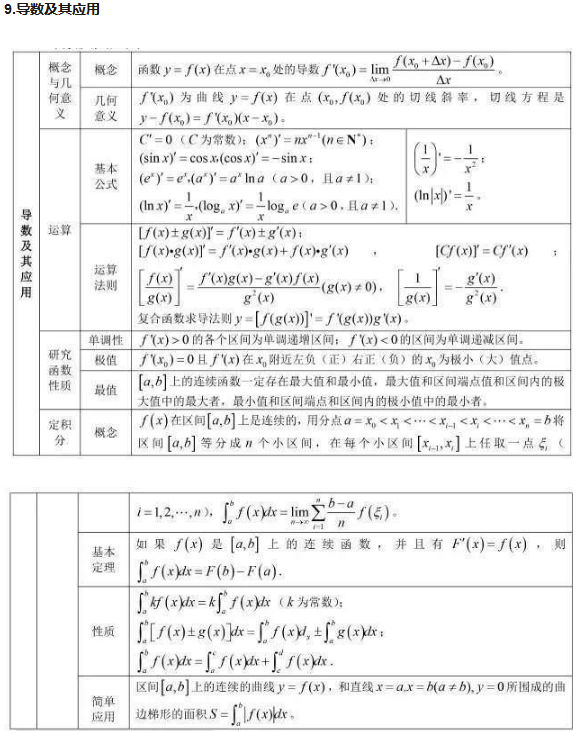 9.导数及其应用
导数及其应用
概念与几何意义
概念
函数 y = f(x) 在点 x = x₀ 处的导数 f'(x₀) = lim_{Δx→0} [f(x₀ + Δx) − f(x₀)] / Δx 。
几何意义
f'(x₀) 为曲线 y = f(x) 在点 (x₀, f(x₀)) 处的切线斜率，切线方程是
y − f(x₀) = f'(x₀)(x − x₀)。
运算
基本公式
C' = 0（C 为常数）；(xⁿ)' = nxⁿ⁻¹(n∈N*)；
(sin x)' = cos x,(cos x)' = −sin x；
(eˣ)' = eˣ,(aˣ)' = aˣ ln a（a > 0，且 a ≠ 1）；
(ln x)' = 1/x,(logₐ x)' = 1/x logₐ e（a > 0，且 a ≠ 1）.
(1/x)' = −1/x²；
(ln|x|)' = 1/x。
运算法则
[f(x) ± g(x)]' = f'(x) ± g'(x)；
[f(x)•g(x)]' = f'(x)•g(x) + f(x)•g'(x) ， [Cf(x)]' = Cf'(x) ；
[f(x)/g(x)]' = [f'(x)g(x) − g'(x)f(x)] / g²(x) (g(x) ≠ 0)，[1/g(x)]' = −g'(x)/g²(x) .
复合函数求导法则 y = [f(g(x))]' = f'(g(x))g'(x)。
研究函数性质
单调性
f'(x) > 0 的各个区间为单调递增区间；f'(x) < 0 的区间为单调递减区间。
极值
f'(x₀) = 0 且 f'(x) 在 x₀ 附近左负（正）右正（负）的 x₀ 为极小（大）值点。
最值
[a,b] 上的连续函数一定存在最大值和最小值，最大值和区间端点值和区间内的极
大值中的最大者，最小值和区间端点和区间内的极小值中的最小者。
定积分
概念
f(x) 在区间 [a,b] 上是连续的，用分点 a = x₀ < x₁ < ⋯ < xᵢ₋₁ < xᵢ < ⋯ < xₙ = b 将
区间 [a,b] 等分成 n 个小区间，在每个小区间 [xᵢ₋₁, xᵢ] 上任取一点 ξᵢ（
i = 1,2,⋯,n），∫ₐᵇ f(x)dx = lim_{n→∞} Σ_{i=1}^{n} (b−a)/n f(ξᵢ)。
基本定理
如果 f(x) 是 [a,b] 上的连续函数，并且有 F'(x) = f(x)，则
∫ₐᵇ f(x)dx = F(b) − F(a) .
性质
∫ₐᵇ kf(x)dx = k∫ₐᵇ f(x)dx（k 为常数）；
∫ₐᵇ [f(x) ± g(x)]dx = ∫ₐᵇ f(x)dₓ ± ∫ₐᵇ g(x)dx；
∫ₐᵇ f(x)dx = ∫ₐᶜ f(x)dx + ∫_c^d f(x)dx .
简单应用
区间 [a,b] 上的连续的曲线 y = f(x)，和直线 x = a,x = b(a ≠ b), y = 0 所围成的曲
边梯形的面积 S = ∫ₐᵇ |f(x)|dx。